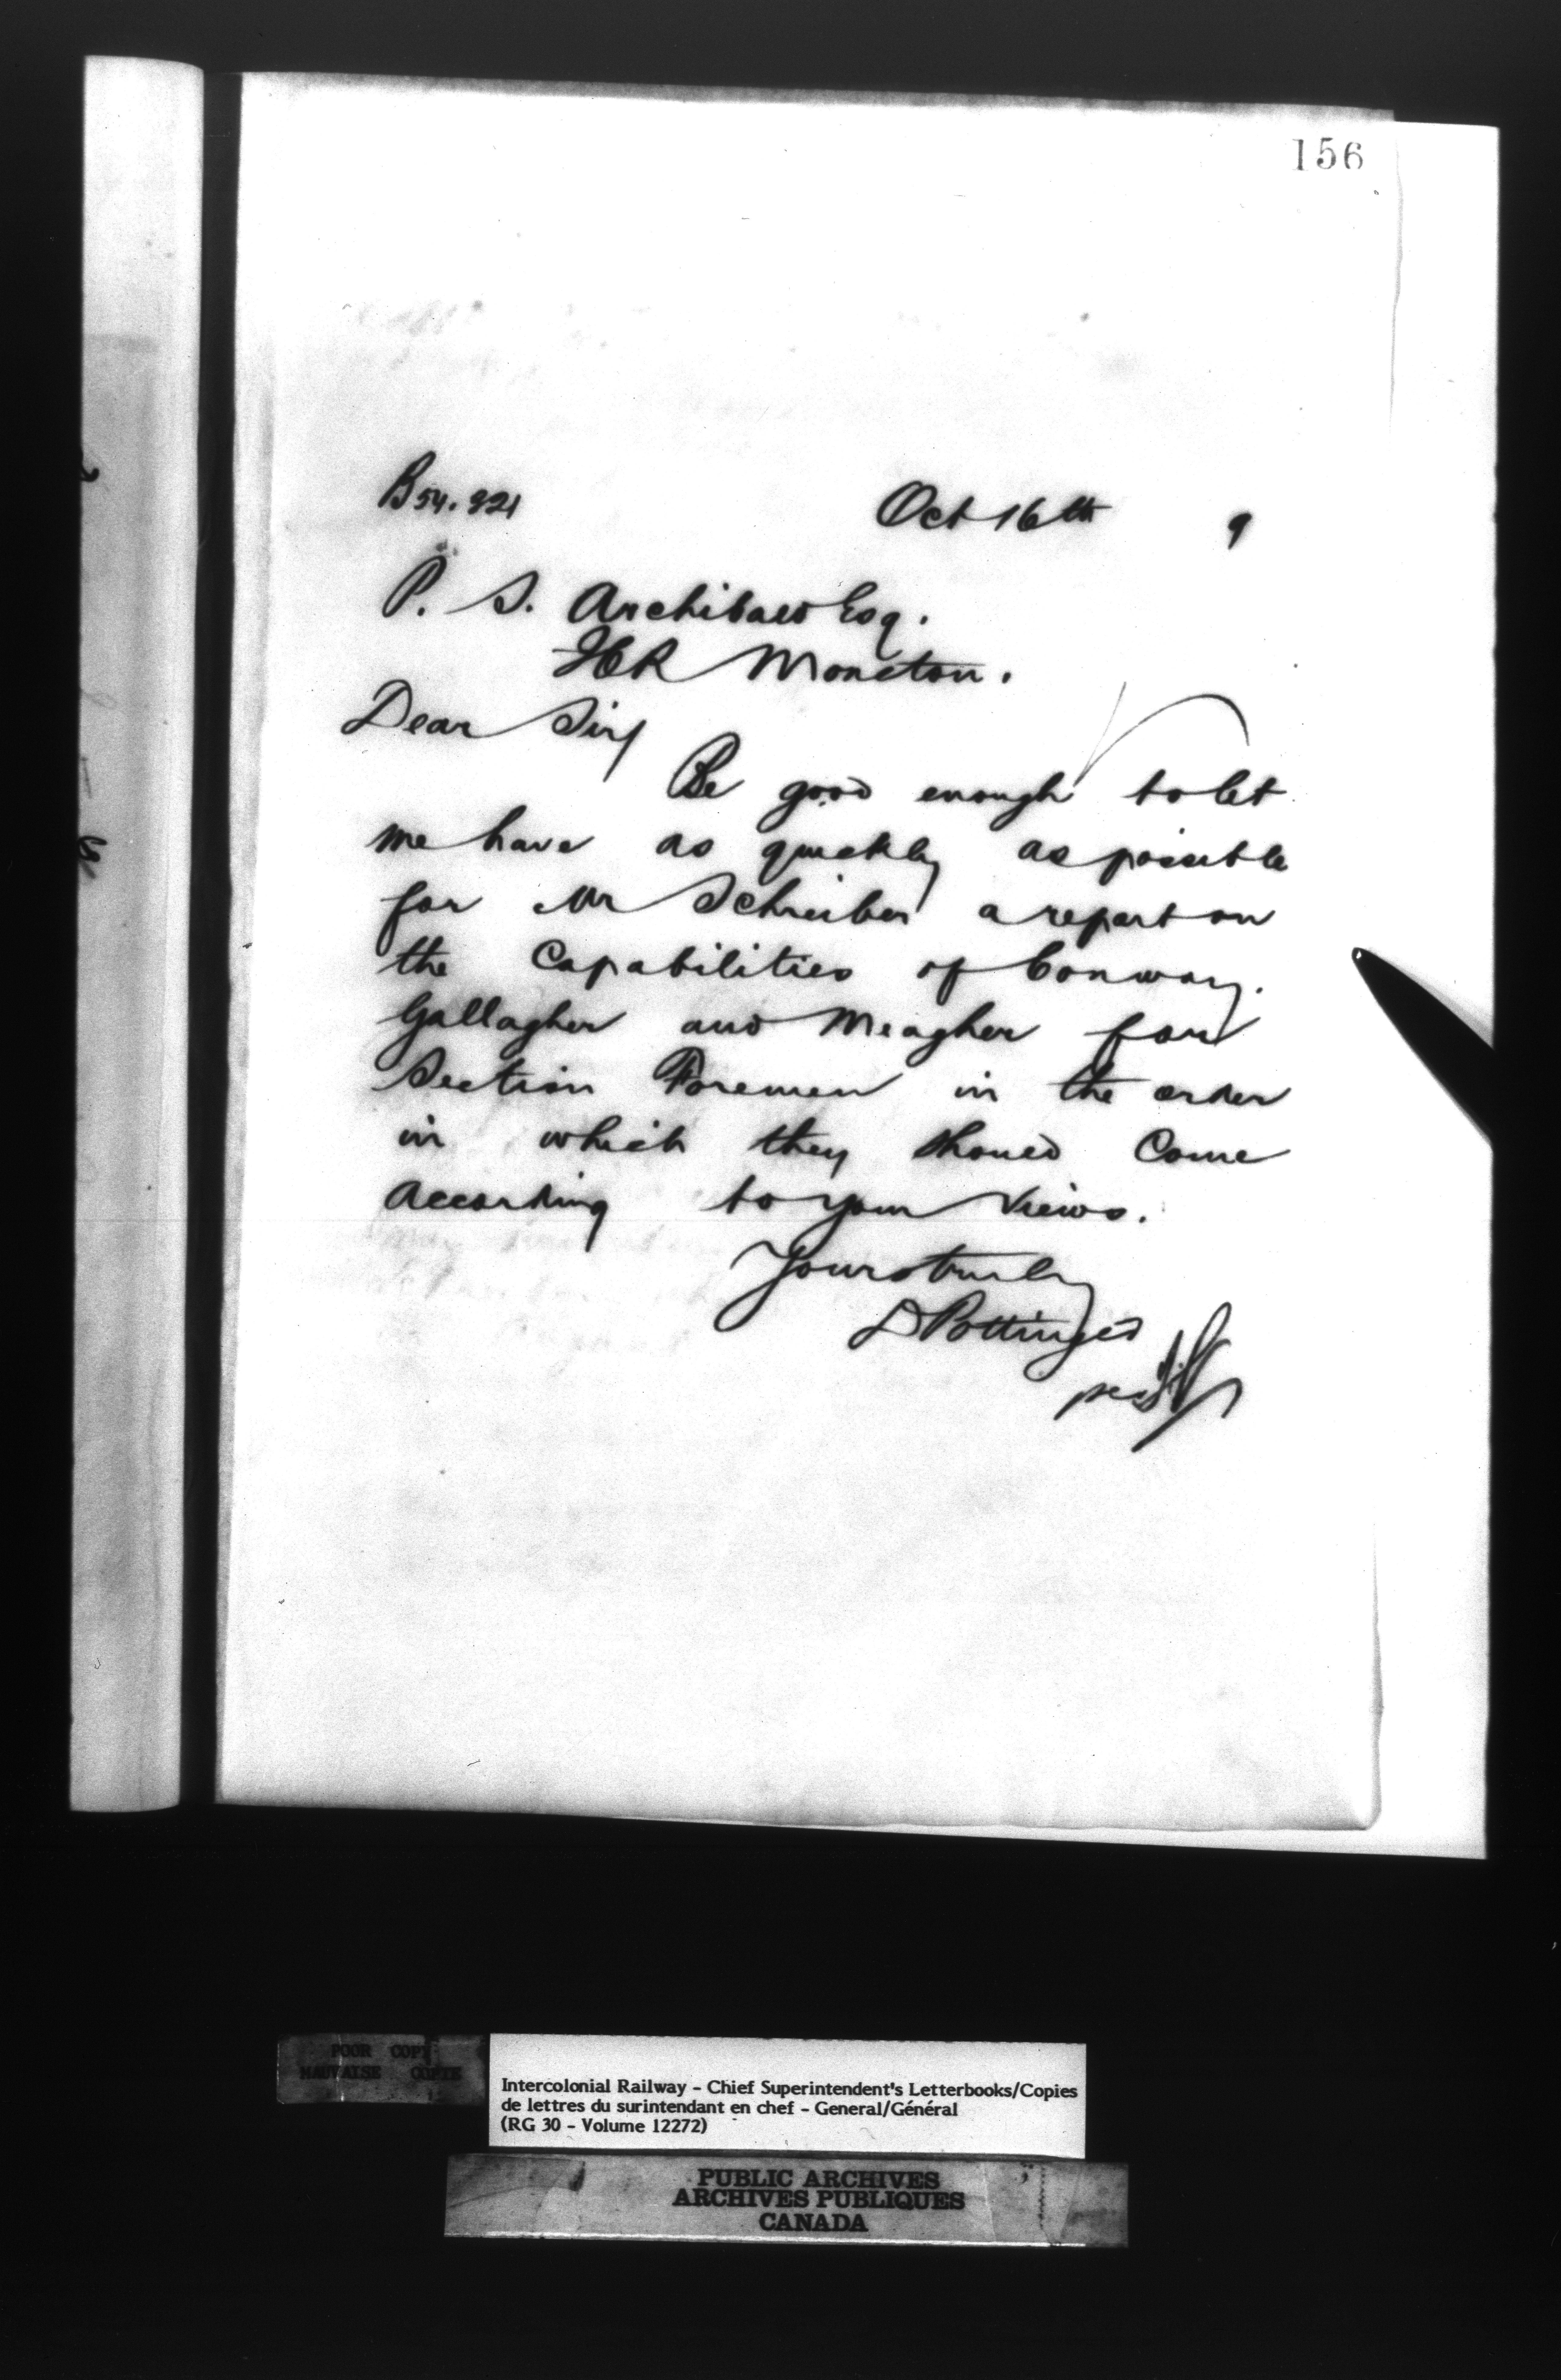 156
B54.821
Oct 16th 9
P. S. Archibald Esq.
ICR Moncton.
Dear Sir/
Be good enough to let
me have as quickly as possible
for Mr Schreiber a report on
the Capabilities of Conway.
Gallagher and Meagher for
Section Foremen in the order
in which they should Come
according to your views.
Yours truly
D Pottinger
POOR COPY
MAUVAISE COPIE
Intercolonial Railway - Chief Superintendent's Letterbooks/Copies
de lettres du surintendant en chef - General/Général
(RG 30 - Volume 12272)
PUBLIC ARCHIVES
ARCHIVES PUBLIQUES
CANADA